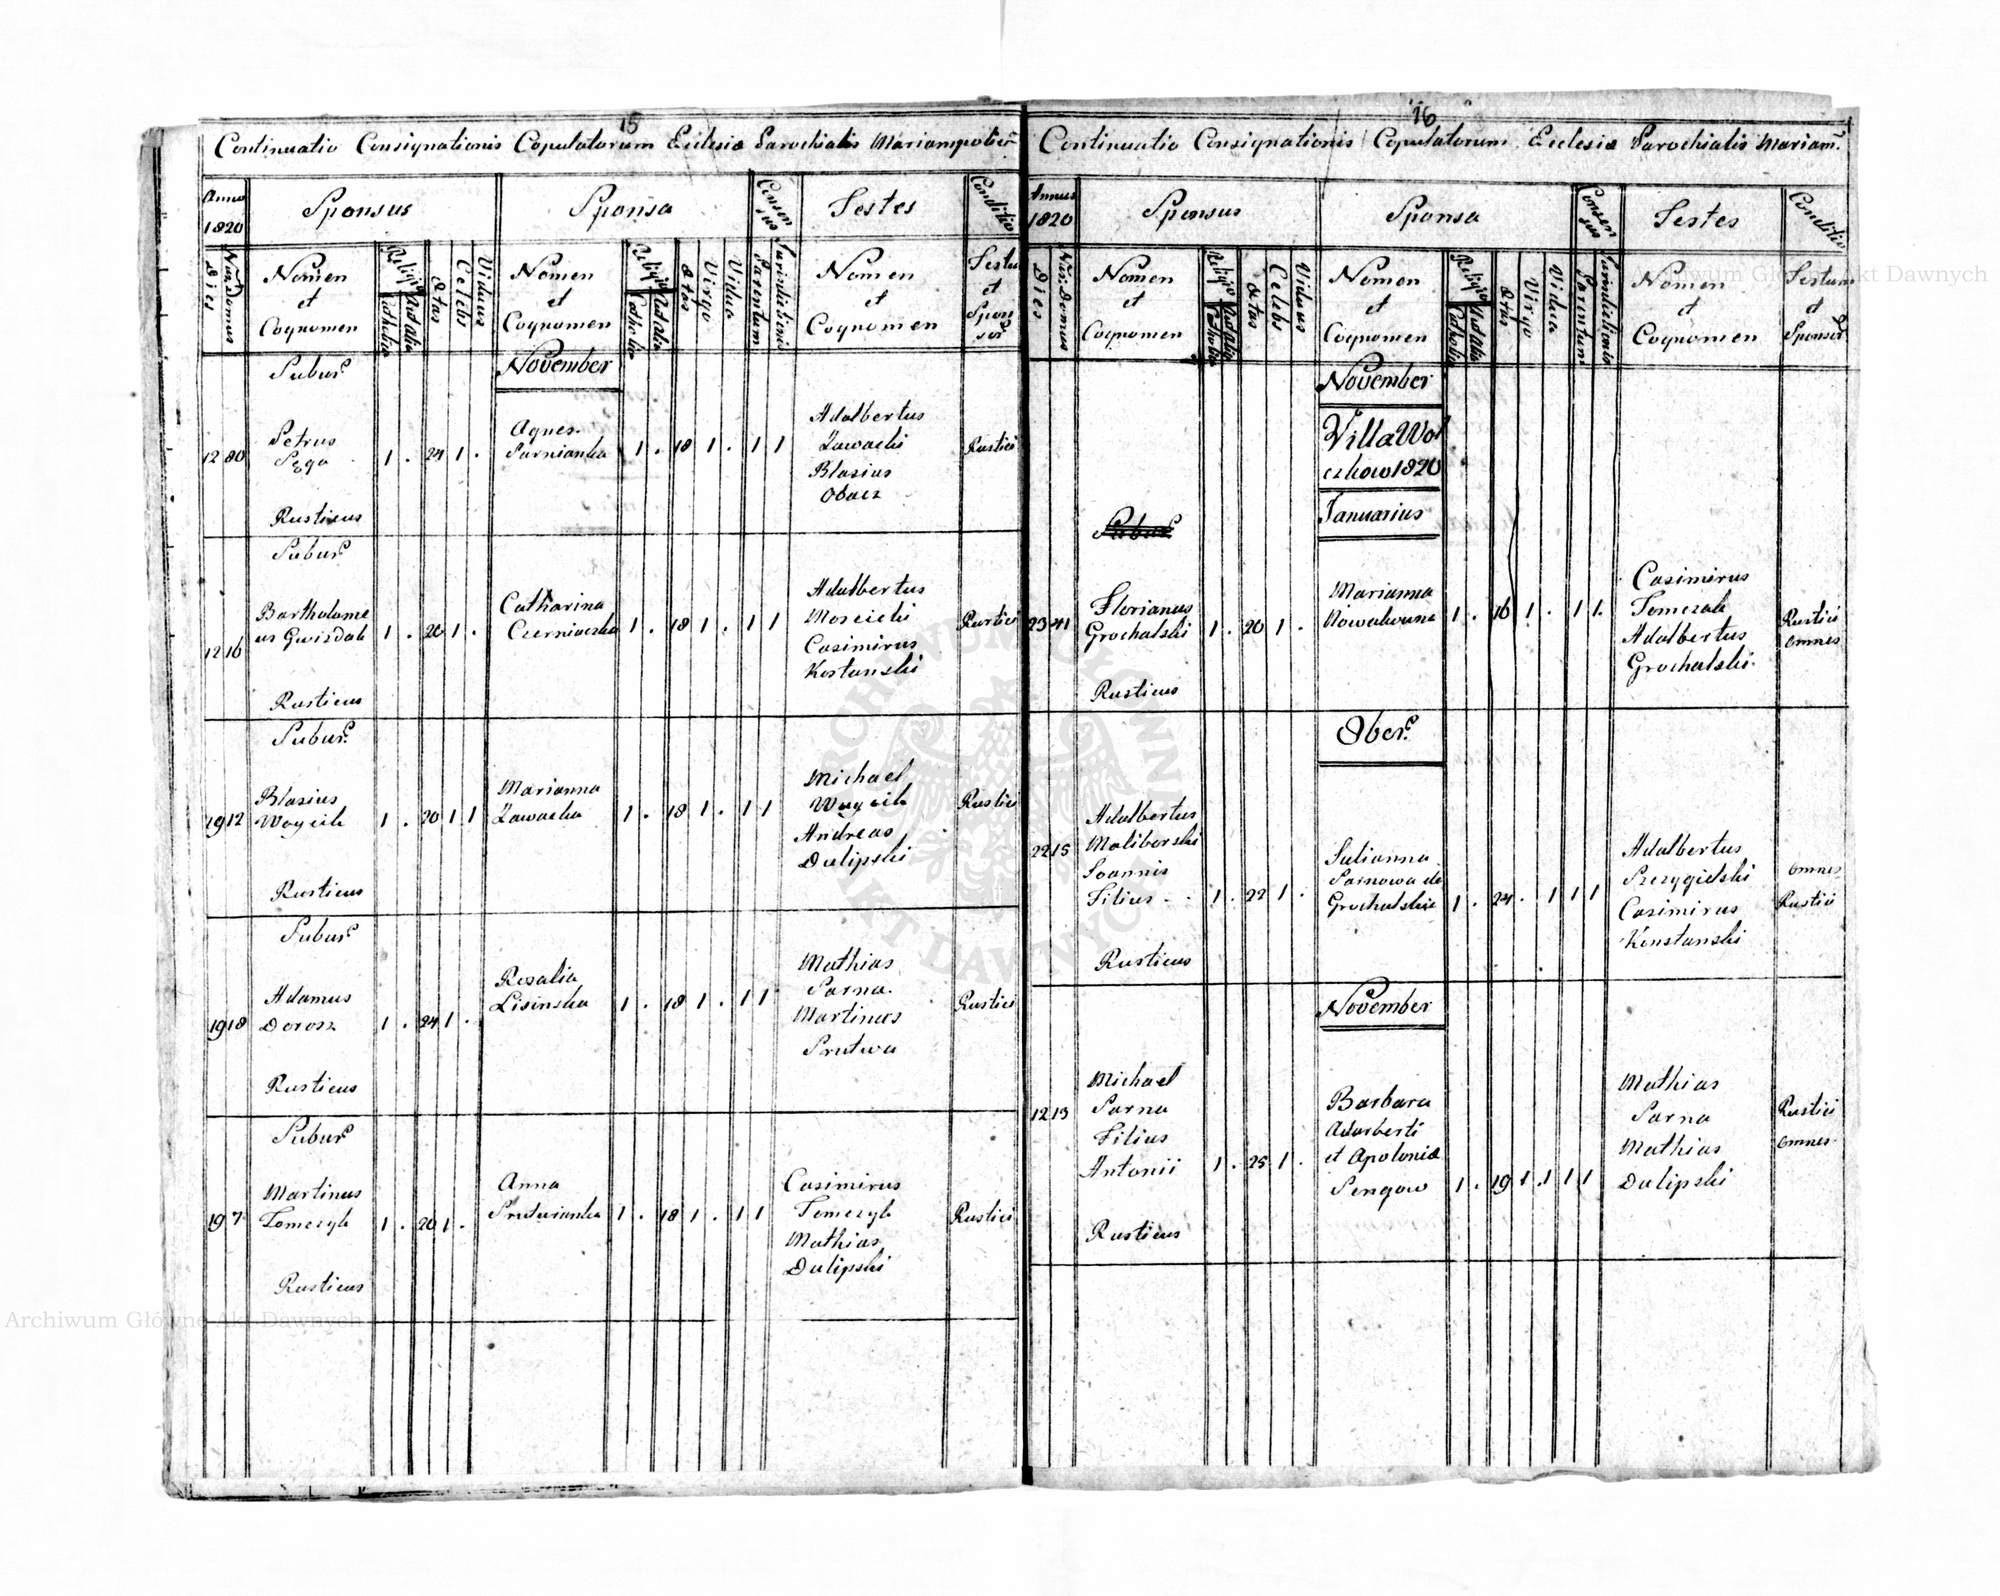 15
Continuatio Consignationis Copulatorum Eclesiæ Parochialis
Anno
1820
Sponsus
Sponsa
Consen
sus
Testes
Conditio
Dies
Nur. Domus
Nomen
et
Cognomen
Religio
Catholica
Ætas
Celebs
Viduus
Nomen
et
Cognomen
Religio
Catholica
Ætas
Virgo
Vidua
Parentum
Nomen
et
Cognomen
et
Subur.
November
12 80
Petrus
1 . 24 1 .
Agnes
1 . 18 1 . 1 1
Adalbertus
Zawacki
Blasius
Rustici
Rusticus
Subur.
12 16
Bartholome
us Gwizdak
1 . 20 1 .
Catharina
Czerniaczka
1 . 18 1 . 1 1
Adalbertus
Moscicki
Casimirus
Rustici
Rusticus
Subur.
19 12
Blasius
Woycik
1 . 20 1 1
Marianna
Zawacka
1 . 18 1 . 1 1
Michael
Woycik
Andreas
Dulipski
Rustici
Rusticus
Subur.
19 18
Adamus
Dorosz
1 . 24 1 .
Rosalia
Lisinska
1 . 18 1 . 1 1
Mathias
Sarna
Martinus
Prutwa
Rustici
Rusticus
Subur.
19 7
Martinus
Tomczyk
1 . 20 1 .
Anna
Prutwianka
1 . 18 1 . 1 1
Casimirus
Tomczyk
Mathias
Dulipski
Rustici
Rusticus
16
Continuatio Consignationis Copulatorum Eclesiæ Parochialis Mariam.
Annus
1820
Sponsus
Sponsa
Consen
sus
Testes
Conditio
Dies
Nur. Domus
Nomen
et
Cognomen
Religio
Catholica
Ætas
Celebs
Viduus
Nomen
et
Cognomen
Religio
Catholica
Ætas
Virgo
Vidua
Parentum
Nomen
et
Cognomen
Testium
et
Sponsor.
November
Villa Wol
czkow 1820
Januarius
Subur.
23 41
Florianus
Grochalski
1 . 20 1 .
Marianna
Nowakowna
1 . 16 1 . 1 1
Casimirus
Tomczak
Adalbertus
Grochalski
Rustici
omnes
Rusticus
8ber.
22 15
Adalbertus
Maliborski
Joannis
Filius
1 . 22 1 .
Julianna
Sarnowa de
Grochalskie
1 . 24 . 1 1 1
Adalbertus
Przygielski
Casimirus
Konstanski
omnes
Rustici
Rusticus
November
12 13
Michael
Sarna
Filius
Antonii
1 . 25 1 .
Barbara
Adarberti
et Apoloniæ
Pengow
1 . 19 1 . 1 1 1
Mathias
Sarna
Mathias
Dulipski
Rustici
omnes
Rusticus
Archiwum Główne Akt Dawnych
Archiwum Główne Akt Dawnych